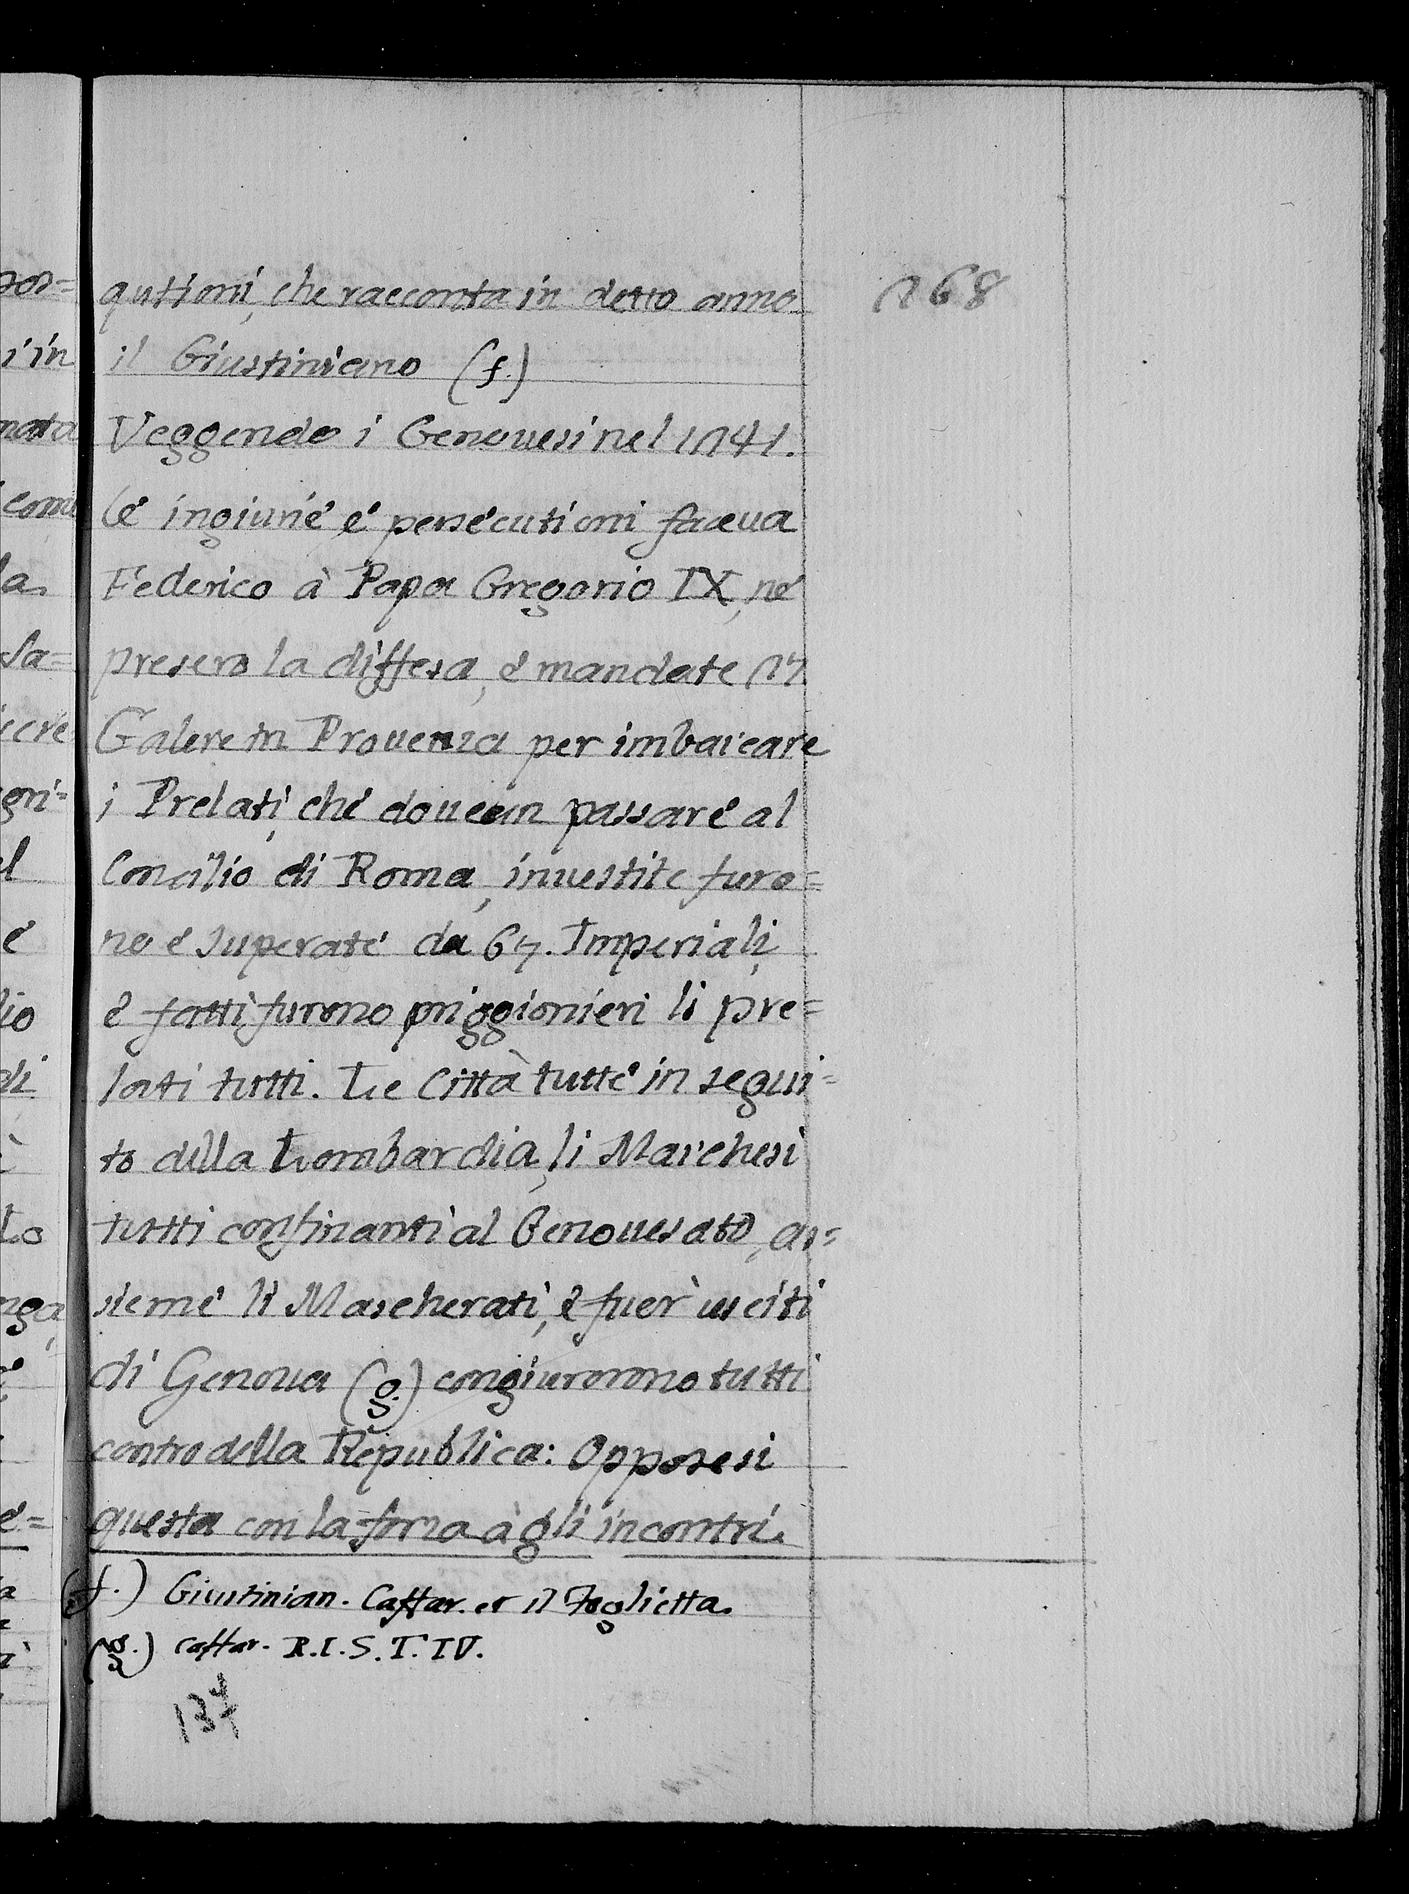 qutioni, che racconta in detto anno 268
il Giustiniano (f.)
Veggendo i Genouesi nel 1241.
le ingiurie e persecutioni faceua
Federico à Papa Gregorio IX, ne
presero la diffesa, e mandate 27
Galere in Prouenza per imbarcare
i Prelati, che douean passare al
Concilio di Roma, inuestite furo=
no e superate da 67. Imperiali,
e fatti furono priggionieri li pre=
lati tutti. Le Città tutte in segui=
to della Lombardia, li Marchesi
tutti confinanti al Genouesato, as=
sieme li Mascherati, e fuer' usciti
di Genoua (g.) congiurorono tutti
contro della Republica: Opposesi
questa con la forza à gli incontri.
(f.) Giustinian. Caffar. et il Foglietta.
(g.) Caffar. R.I.S.T.IV.